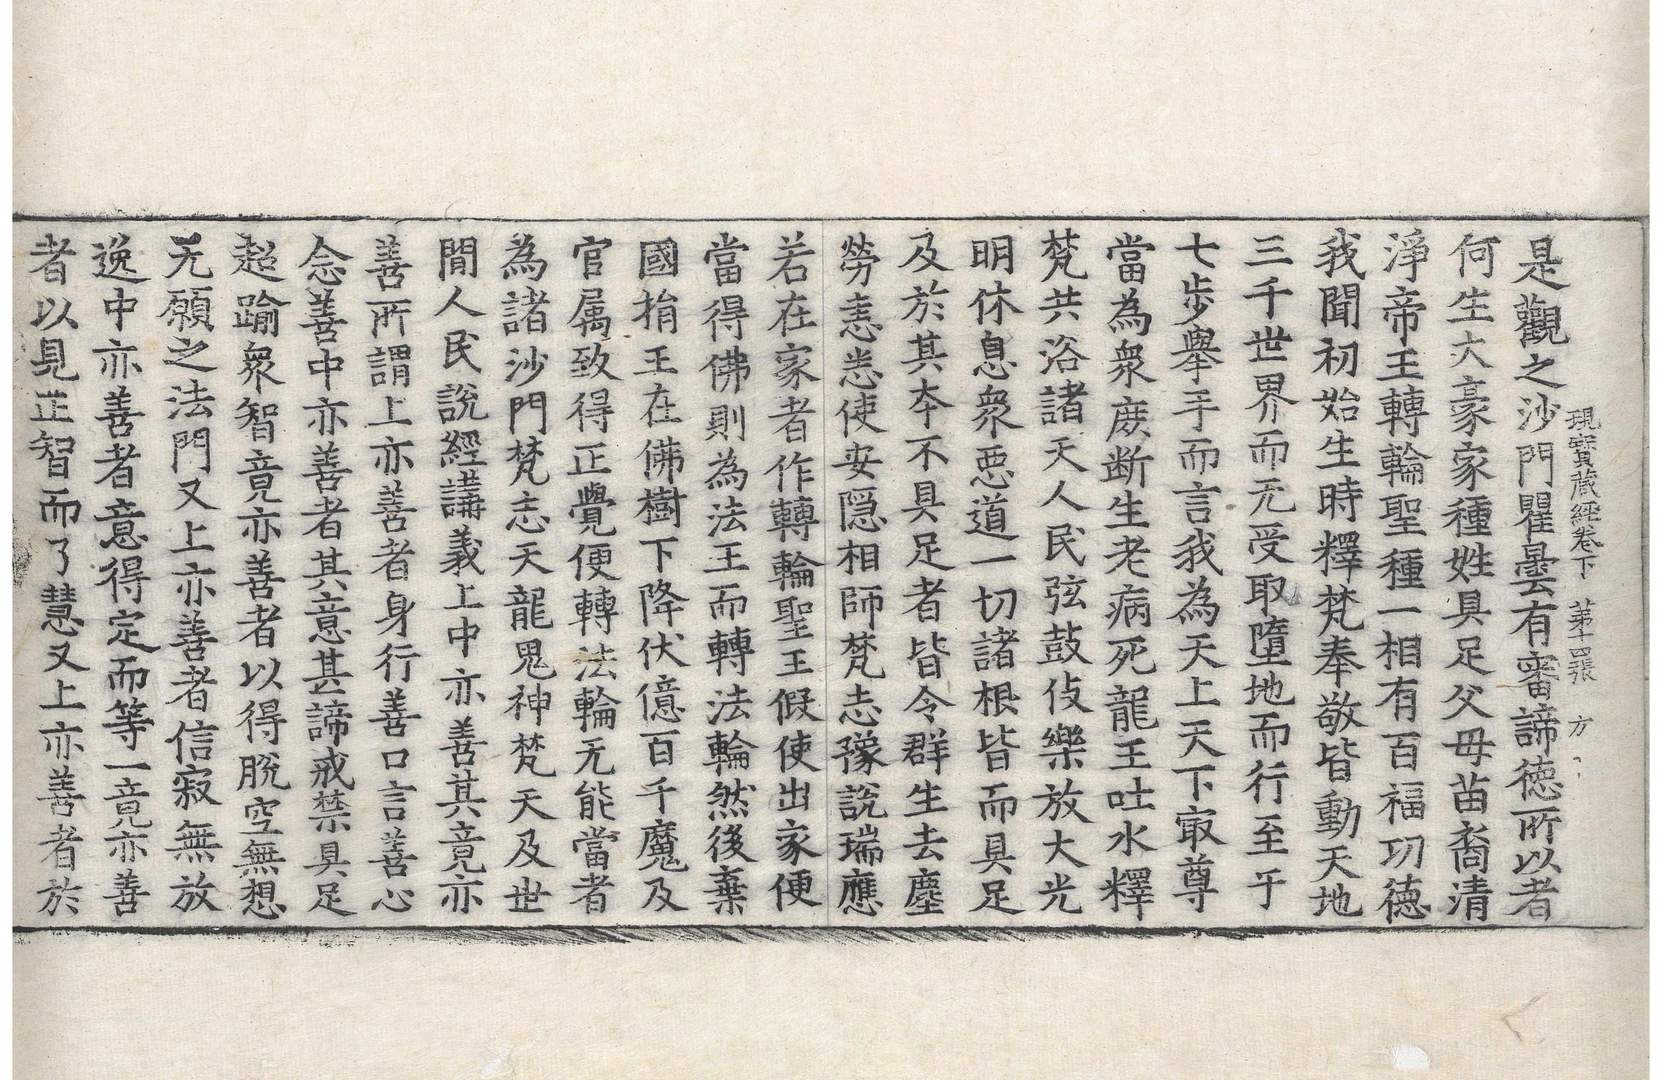 現寳藏經卷下 第十四張 方
是觀之沙門瞿曇有審諦德所以者
何生大豪家種姓具足父母苗裔清
淨帝王轉輪聖種一相有百福功德
我聞初始生時釋梵奉敬皆動天地
三千世界而无受取墮地而行至于
七步舉手而言我為天上天下㝡尊
當為衆庶断生老病死龍王吐水釋
梵共浴諸天人民弦鼓伎樂放大光
明休息衆惡道一切諸根皆而具足
及於其本不具足者皆令群生去塵
勞恚恚使安隠相師梵志豫說瑞應
若在家者作轉輪聖王假使出家便
當得佛則為法王而轉法輪然後棄
國捐王在佛樹下降伏億百千魔及
官属致得正覺便轉法輪无能當者
為諸沙門梵志天龍鬼神梵天及世
間人民說經講義上中亦善其竟亦
善所謂上亦善者身行善口言善心
念善中亦善者其意甚諦戒禁具足
超踰衆智竟亦善者以得脫空無想
无願之法門又上亦善者信寂無放
逸中亦善者意得定而等一竟亦善
者以見正智而了慧又上亦善者於